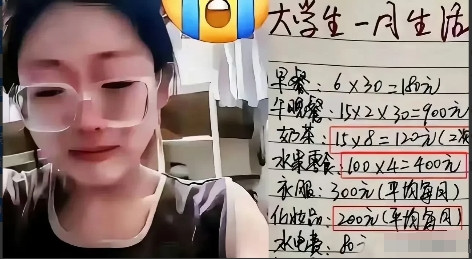 大学生一月生活
早餐：6×30=180元
午晚餐：15×2×30=900元
奶茶：15×8=120元(二次
水果零食：100×4=400元
衣服：300元(平均每月)
化妆品：200元(平均每月)
水电费：80